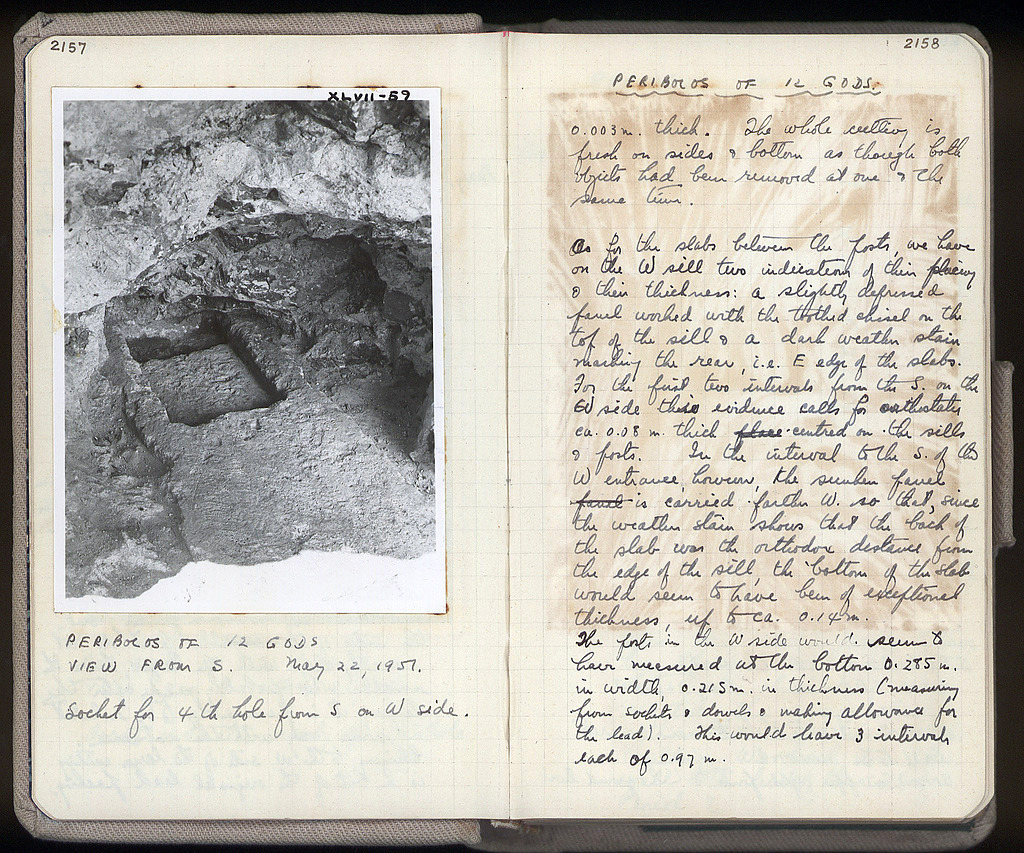 2157
XLVII-59
PERIBOLOS OF 12 GODS
VIEW FROM S. May 22, 1951.
Socket for 4th hole from S on W side.
2158
PERIBOLOS OF 12 GODS.
0.003 m. thick. The whole cutting is
fresh on sides & bottom as though both
objects had been removed at one & the
same time.
As for the slabs between the posts, we have
on the W sill two indications of their placing
& their thickness: a slightly depressed
panel worked with the toothed chisel on the
top of the sill & a dark weather stain
marking the rear, i.e. E edge of the slabs.
For the first two intervals from the S. on the
W side this evidence calls for orthostates
ca. 0.08 m. thick place centred on the sills
& posts. In the interval to the S. of the
W entrance, however, the sunken panel
panel is carried farther W. so that, since
the weather stain shows that the back of
the slab was the orthodox distance from
the edge of the sill, the bottom of the slab
would seem to have been of exceptional
thickness, up to ca. 0.14 m.
The posts in the W side would seem to
have measured at the bottom 0.285 m.
in width, 0.215 m. in thickness (measuring
from sockets & dowels & making allowance for
the lead). This would leave 3 intervals
each of 0.97 m.